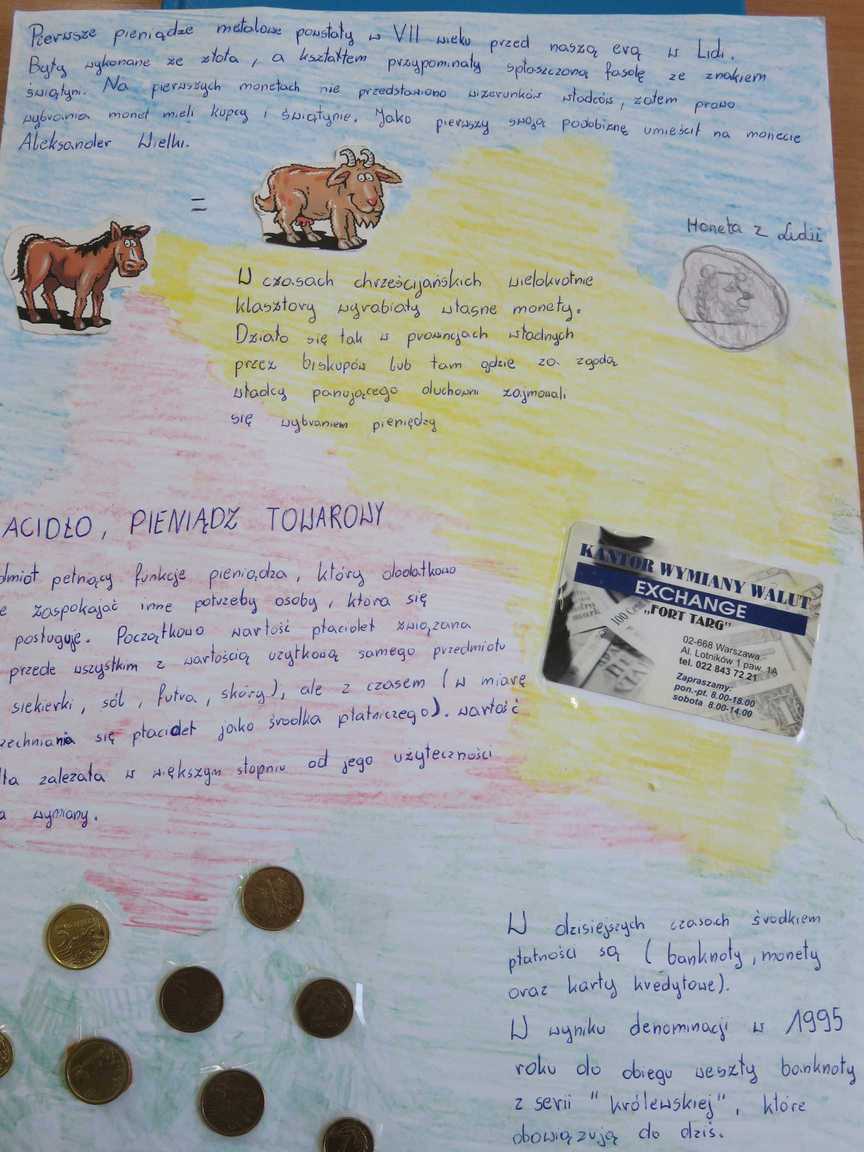 Pierwsze pieniądze metalowe powstały w VII wieku przed naszą erą w Lidi.
Były wykonane ze złota, a kształtem przypominały spłaszczoną fasolę ze znakiem
świątyni. Na pierwszych monetach nie przedstawiono wizerunków władców, zatem prawo
wybrania monet mieli kupcy i świątynie. Jako pierwszy swoją podobiznę umieścił na monecie
Aleksander Wielki.
=
Moneta z Lidii
W czasach chrześcijańskich wielokrotnie
klasztory wyrabiały własne monety.
Działo się tak w prowincjach władnych
przez biskupów lub tam gdzie za zgodą
władcy panującego duchowni zajmowali
się wybraniem pieniędzy
ACIDŁO, PIENIĄDZ TOWAROWY
dmiot pełniący funkcje pieniądza, który dodatkowo
e zaspokajać inne potrzeby osoby, która się
posługuje. Początkowo wartość płacideł związana
przede wszystkim z wartością użytkową samego przedmiotu
siekierki, sól, futra, skóry), ale z czasem (w miarę
zechniania się płacideł jako środka płatniczego). wartość
dła zależała w większym stopniu od jego użyteczności
a wymiany.
KANTOR WYMIANY WALUT
EXCHANGE
„FORT TARG"
02-668 Warszawa
Al. Lotników 1 paw. 1A
tel. 022 843 72 21
Zapraszamy:
pon.-pt. 8.00-18.00
sobota 8.00-14.00
W dzisiejszych czasach środkiem
płatności są (banknoty, monety
oraz karty kredytowe).
W wyniku denominacji w 1995
roku do obiegu weszły banknoty
z serii "królewskiej", które
obowiązują do dziś.